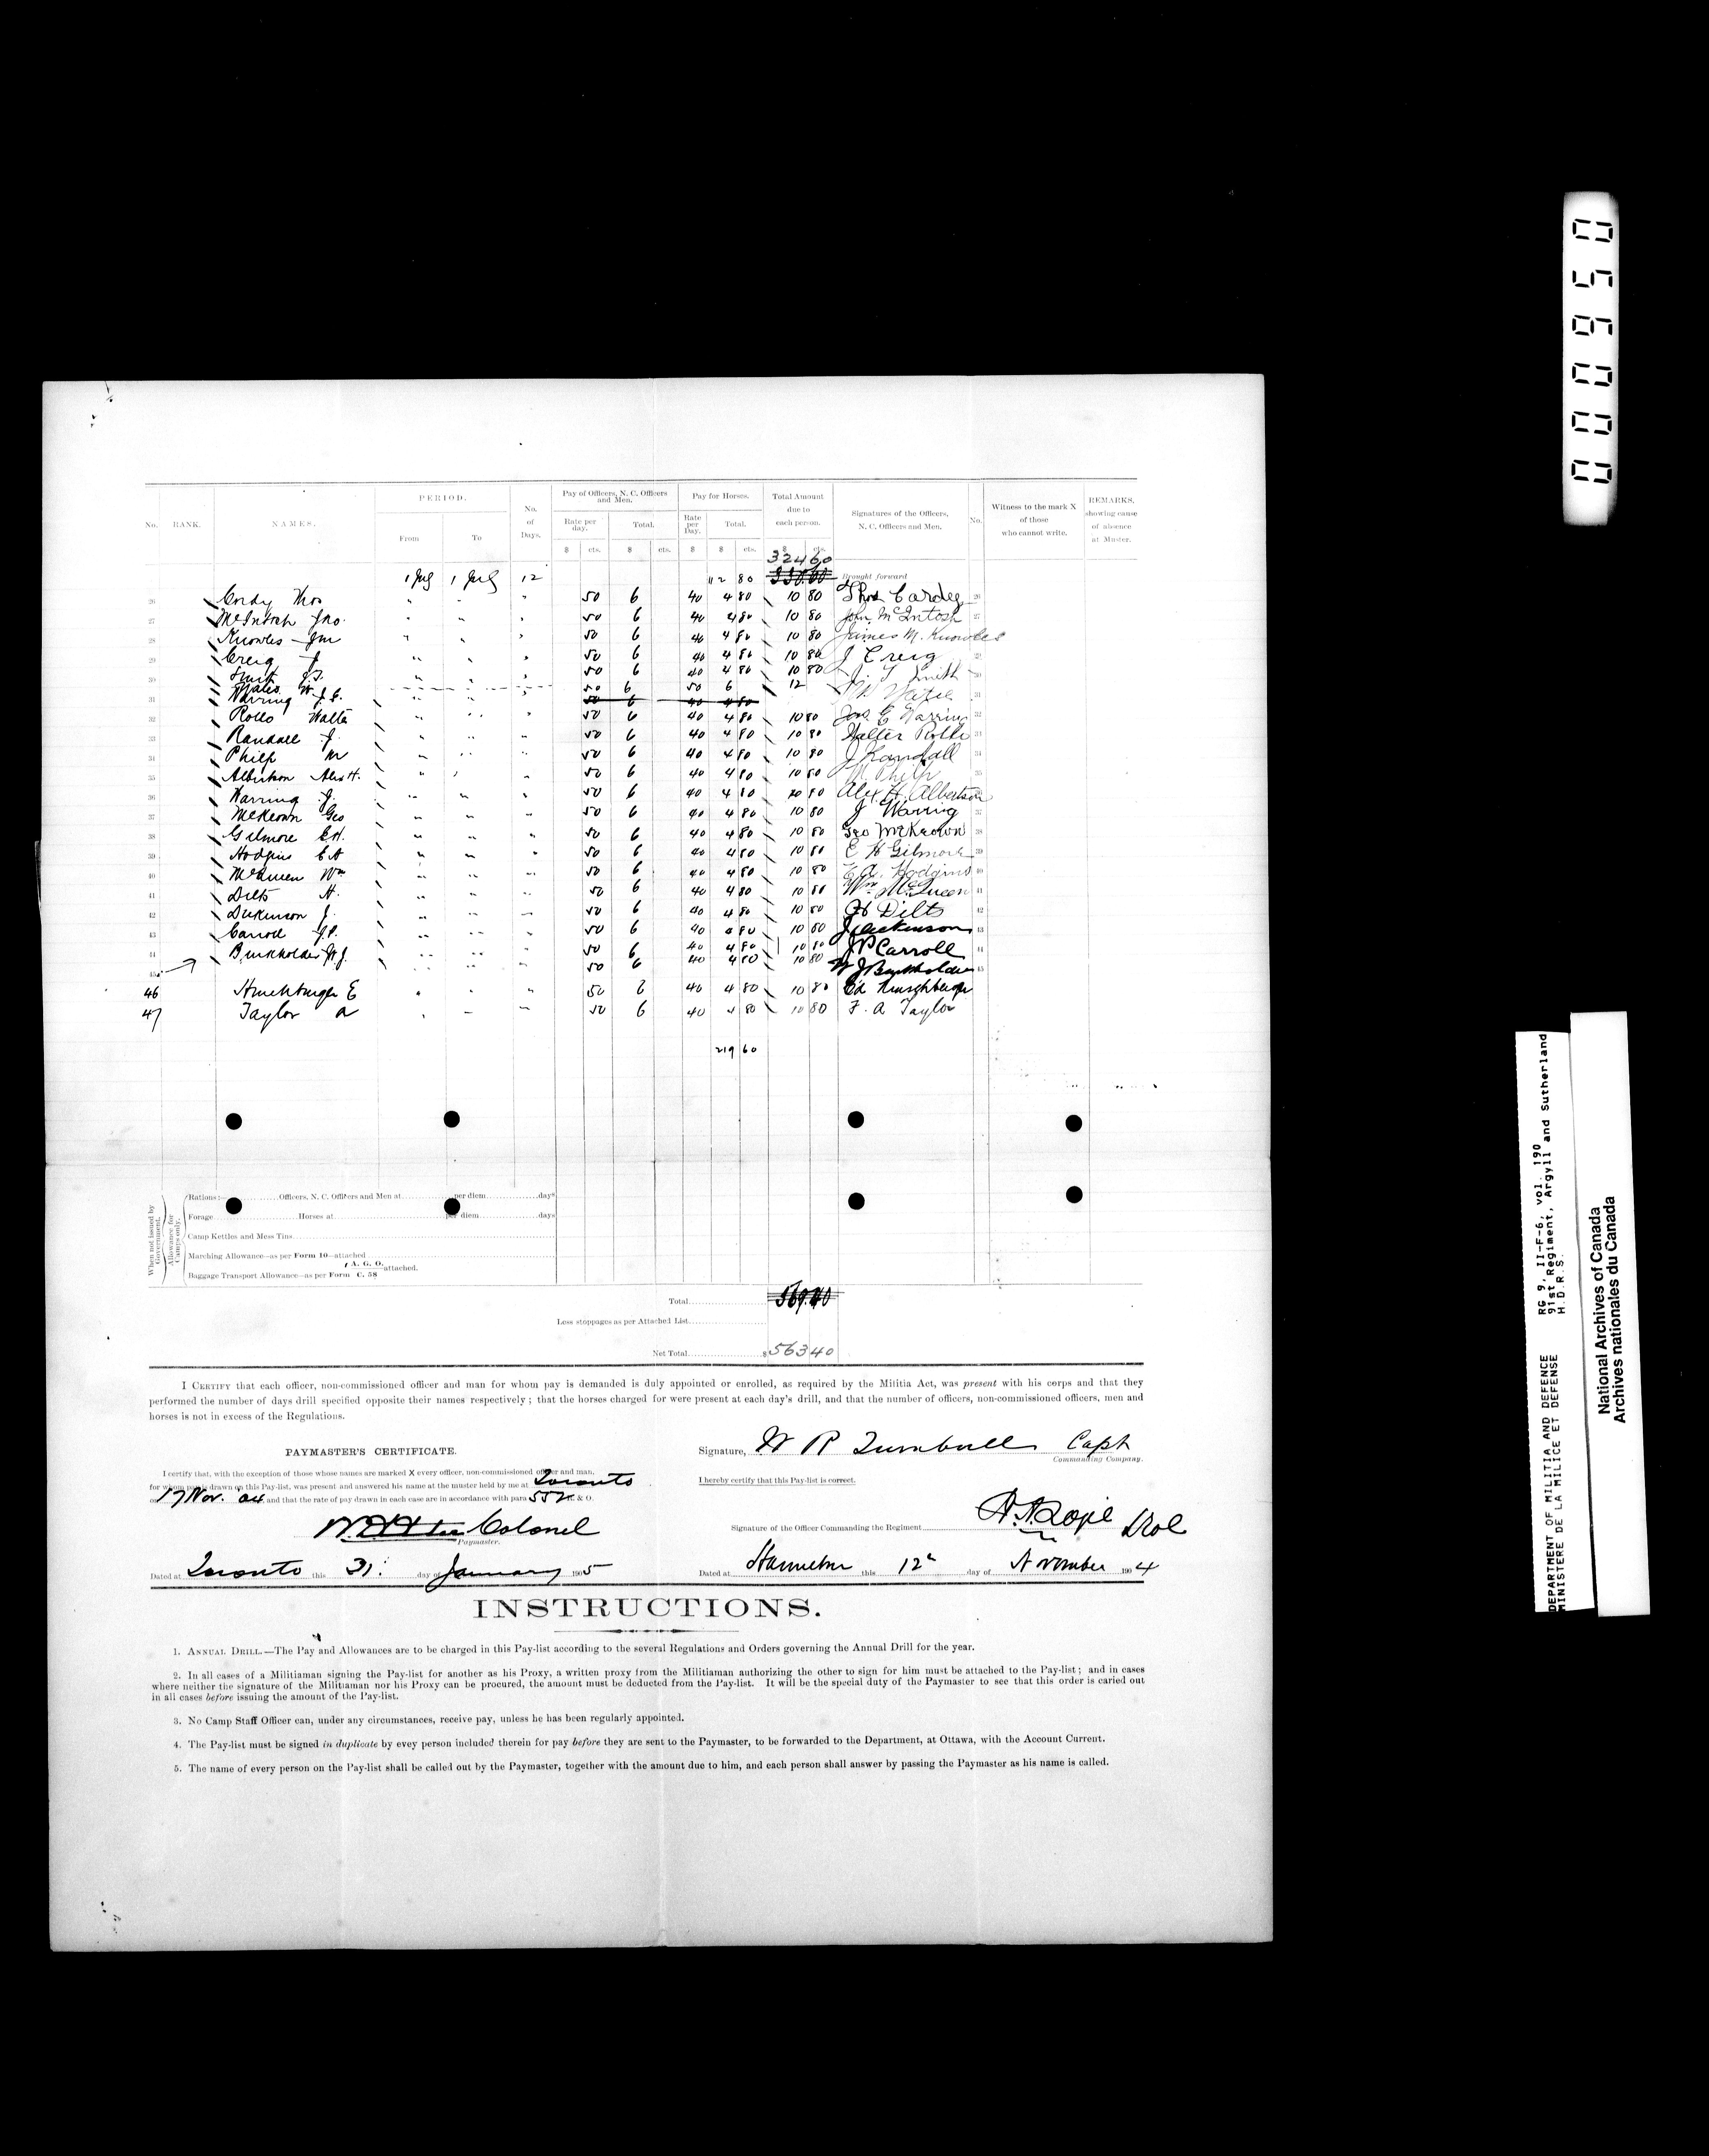 No. RANK. NAMES. PERIOD. From To No. of Days. Pay of Officers, N. C. Officers and Men. Rate per day. Total. Pay for Horses. Rate per Day. Total. Total Amount due to each person. Signatures of the Officers, N. C. Officers and Men. No. Witness to the mark X of those who cannot write. REMARKS, showing cause of absence at Muster.
$ cts. $ cts. $ $ cts. $ cts.
324 60
12 112 80 Brought forward
26 Cordy Thos 50 6 40 4 80 10 80 Thos Cardey 26
27 McIntosh Jno. 50 6 40 4 80 10 80 John McIntosh 27
28 Knowles Jm 50 6 40 4 80 10 80 James M. Knowles
29 Creig J 50 6 40 4 80 10 80 J Creig
30 Smith J.T. 50 6 40 4 80 10 80 J. T. Smith 30
50 6 50 6 12
31 Warring J. E. 50 6 40 4 80 31
32 Rollo Walter 50 6 40 4 80 10 80 Jos. E Warring 32
33 Randall J. 50 6 40 4 80 10 80 Walter Rollo 33
34 Philp M 50 6 40 4 80 10 80 J Randall 34
35 Albertson Alex H. 50 6 40 4 80 10 80 M. Philp 35
36 Warring J. 50 6 40 4 80 10 80 Alex. H. Albertson
37 McKeown Geo 50 6 40 4 80 10 80 J Warring 37
38 Gilmore E.H. 50 6 40 4 80 10 80 Geo McKeown 38
39 Hodgins E A 50 6 40 4 80 10 80 E H Gilmore 39
40 McQueen Wm 50 6 40 4 80 10 80 E.A. Hodgins 40
41 Dilts H. 50 6 40 4 80 10 80 Wm. McQueen 41
42 Dickinson J. 50 6 40 4 80 10 80 H Dilts 42
43 Carroll J.P. 50 6 40 4 80 10 80 J Dickinson 43
44 Burkholder W.J. 50 6 40 4 80 10 80 J P Carroll 44
45 50 6 40 4 80 10 80 W J Burkholder 45
46 Hirschburger E 50 6 40 4 80 10 80 Ed Hirschberger
47 Taylor A 50 6 40 4 80 10 80 F. A Taylor
219 60
When not issued by Government.
Allowance for Camps only.
Rations:— Officers, N. C. Officers and Men at per diem days
Forage Horses at per diem days
Camp Kettles and Mess Tins
Marching Allowance—as per Form 10—attached
Baggage Transport Allowance—as per Form A. G. O. C. 58 attached.
Total 569.40
Less stoppages as per Attached List
Net Total $ 563 40
I CERTIFY that each officer, non-commissioned officer and man for whom pay is demanded is duly appointed or enrolled, as required by the Militia Act, was present with his corps and that they
performed the number of days drill specified opposite their names respectively; that the horses charged for were present at each day's drill, and that the number of officers, non-commissioned officers, men and
horses is not in excess of the Regulations.
Signature, W R Turnbull Capt
Commanding Company.
PAYMASTER'S CERTIFICATE.
I certify that, with the exception of those whose names are marked X every officer, non-commissioned officer and man,
for whom pay is drawn on this Pay-list, was present and answered his name at the muster held by me at Toronto
on 17 Nov. 04 and that the rate of pay drawn in each case are in accordance with para 552 R. & O.
I hereby certify that this Pay-list is correct.
Colonel
Paymaster.
Signature of the Officer Commanding the Regiment
Dated at Toronto this 31. day of January 1905
Dated at Hamilton this 12th day of November 1904
INSTRUCTIONS.
1. ANNUAL DRILL.—The Pay and Allowances are to be charged in this Pay-list according to the several Regulations and Orders governing the Annual Drill for the year.
2. In all cases of a Militiaman signing the Pay-list for another as his Proxy, a written proxy from the Militiaman authorizing the other to sign for him must be attached to the Pay-list; and in cases
where neither the signature of the Militiaman nor his Proxy can be procured, the amount must be deducted from the Pay-list. It will be the special duty of the Paymaster to see that this order is caried out
in all cases before issuing the amount of the Pay-list.
3. No Camp Staff Officer can, under any circumstances, receive pay, unless he has been regularly appointed.
4. The Pay-list must be signed in duplicate by evey person included therein for pay before they are sent to the Paymaster, to be forwarded to the Department, at Ottawa, with the Account Current.
5. The name of every person on the Pay-list shall be called out by the Paymaster, together with the amount due to him, and each person shall answer by passing the Paymaster as his name is called.
DEPARTMENT OF MILITIA AND DEFENCE RG 9, II-F-6, vol. 190
MINISTERE DE LA MILICE ET DEFENSE 91st Regiment, Argyll and Sutherland
H.D.R.S.
National Archives of Canada
Archives nationales du Canada